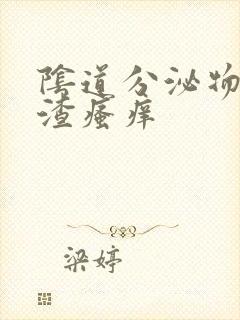 陰道分泌物
渣瘙痒
梁婷